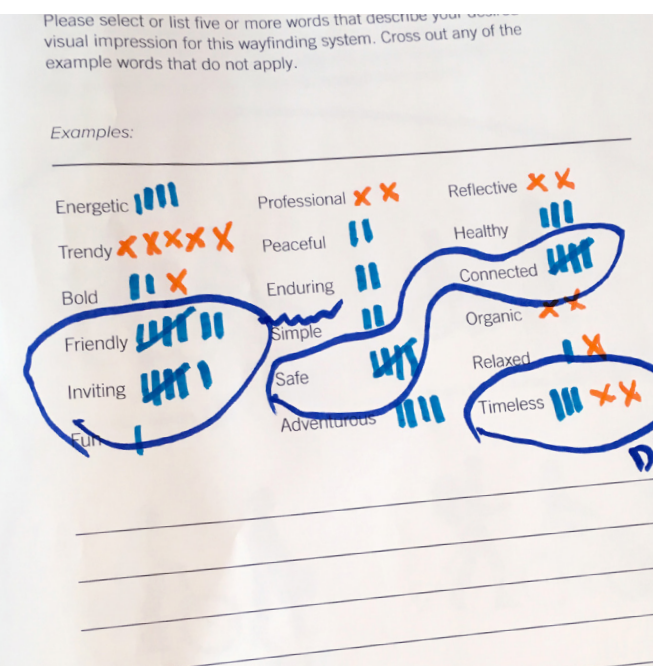 Please select or list five or more words that describe your desired
visual impression for this wayfinding system. Cross out any of the
example words that do not apply.
Examples:
Energetic
Trendy
Bold
Friendly
Inviting
Fun
Professional
Peaceful
Enduring
Simple
Safe
Adventurous
Reflective
Healthy
Connected
Organic
Relaxed
Timeless
D